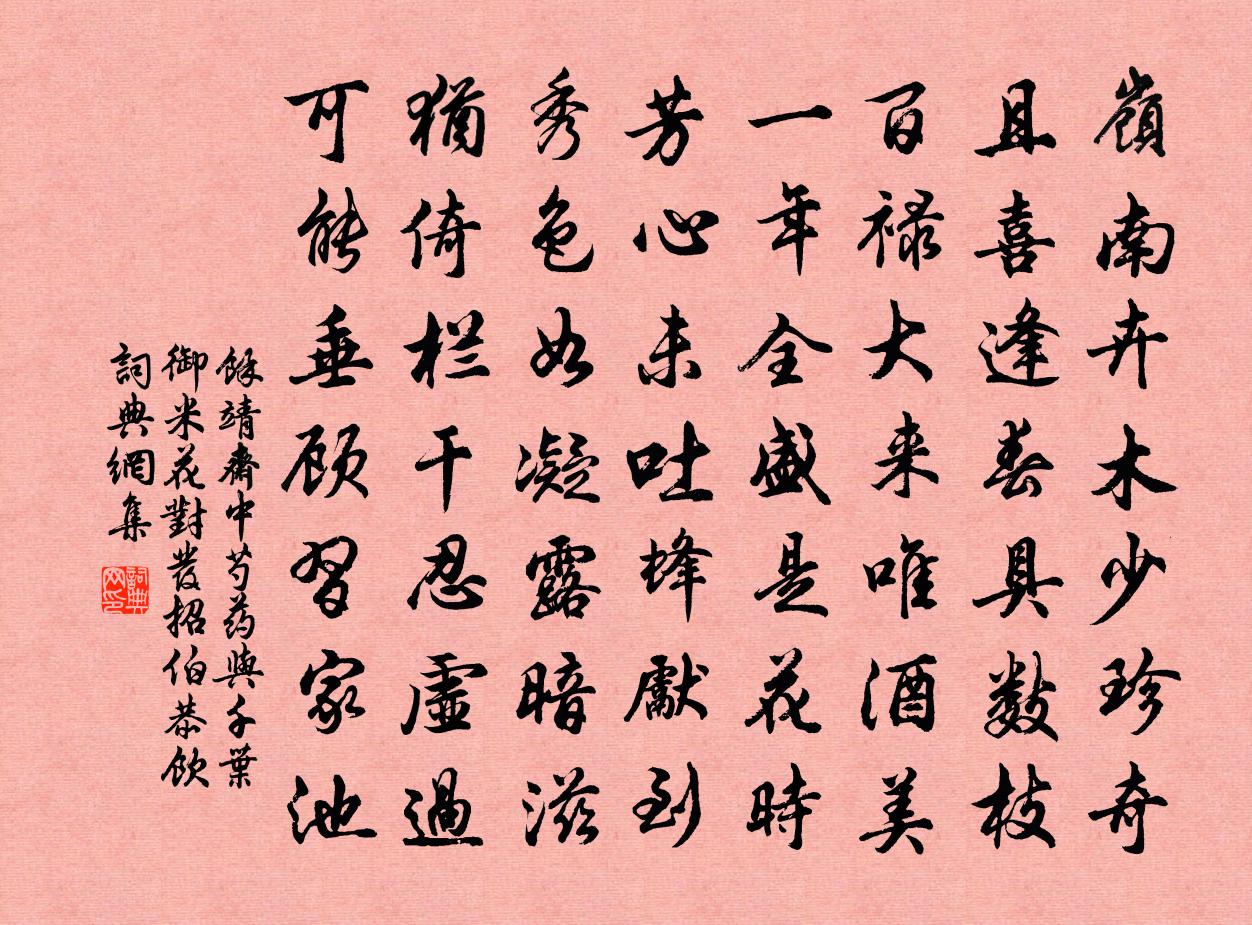 嶺南卉木少珍奇
且喜逢春具數枝
百禄大来唯酒美
一年全盛是花時
芳心未吐蜂獻到
秀色如凝露暗滋
猶倚栏干忍虛過
可能垂顾習家池
餘靖齋中芍药與千葉
御米花對發招伯恭飲
詞典網集
詞典网印